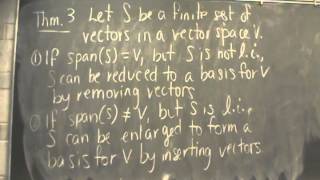 Thm. 3 Let S be a finite set of
vectors in a vector space V.
① If span(S) = V, but S is not l.i.,
S can be reduced to a basis for V
by removing vectors
② If span(S) ≠ V, but S is l.i.,
S can be enlarged to form a
basis for V by inserting vectors